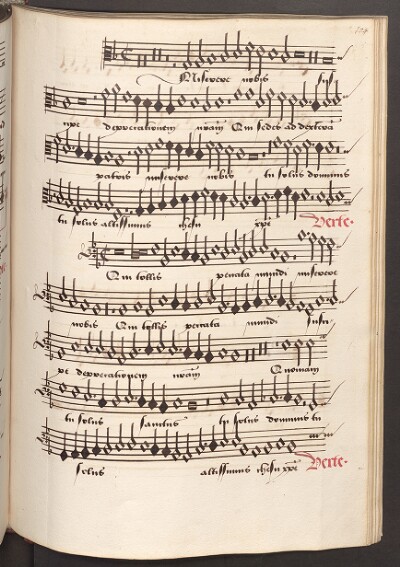 Miserere nobis Sus
cipe deprecationem nram Qui sedes ad dexteram
patris miserere nobis tu solus dominus
tu solus altissimus ihesu xpe Verte.
Qui tollis peccata mundi miserere
nobis Qui tollis peccata mundi Susci
pe deprecationem nram Quoniam
tu solus sanctus tu solus dominus tu
solus altissimus ihesu xpe Verte.